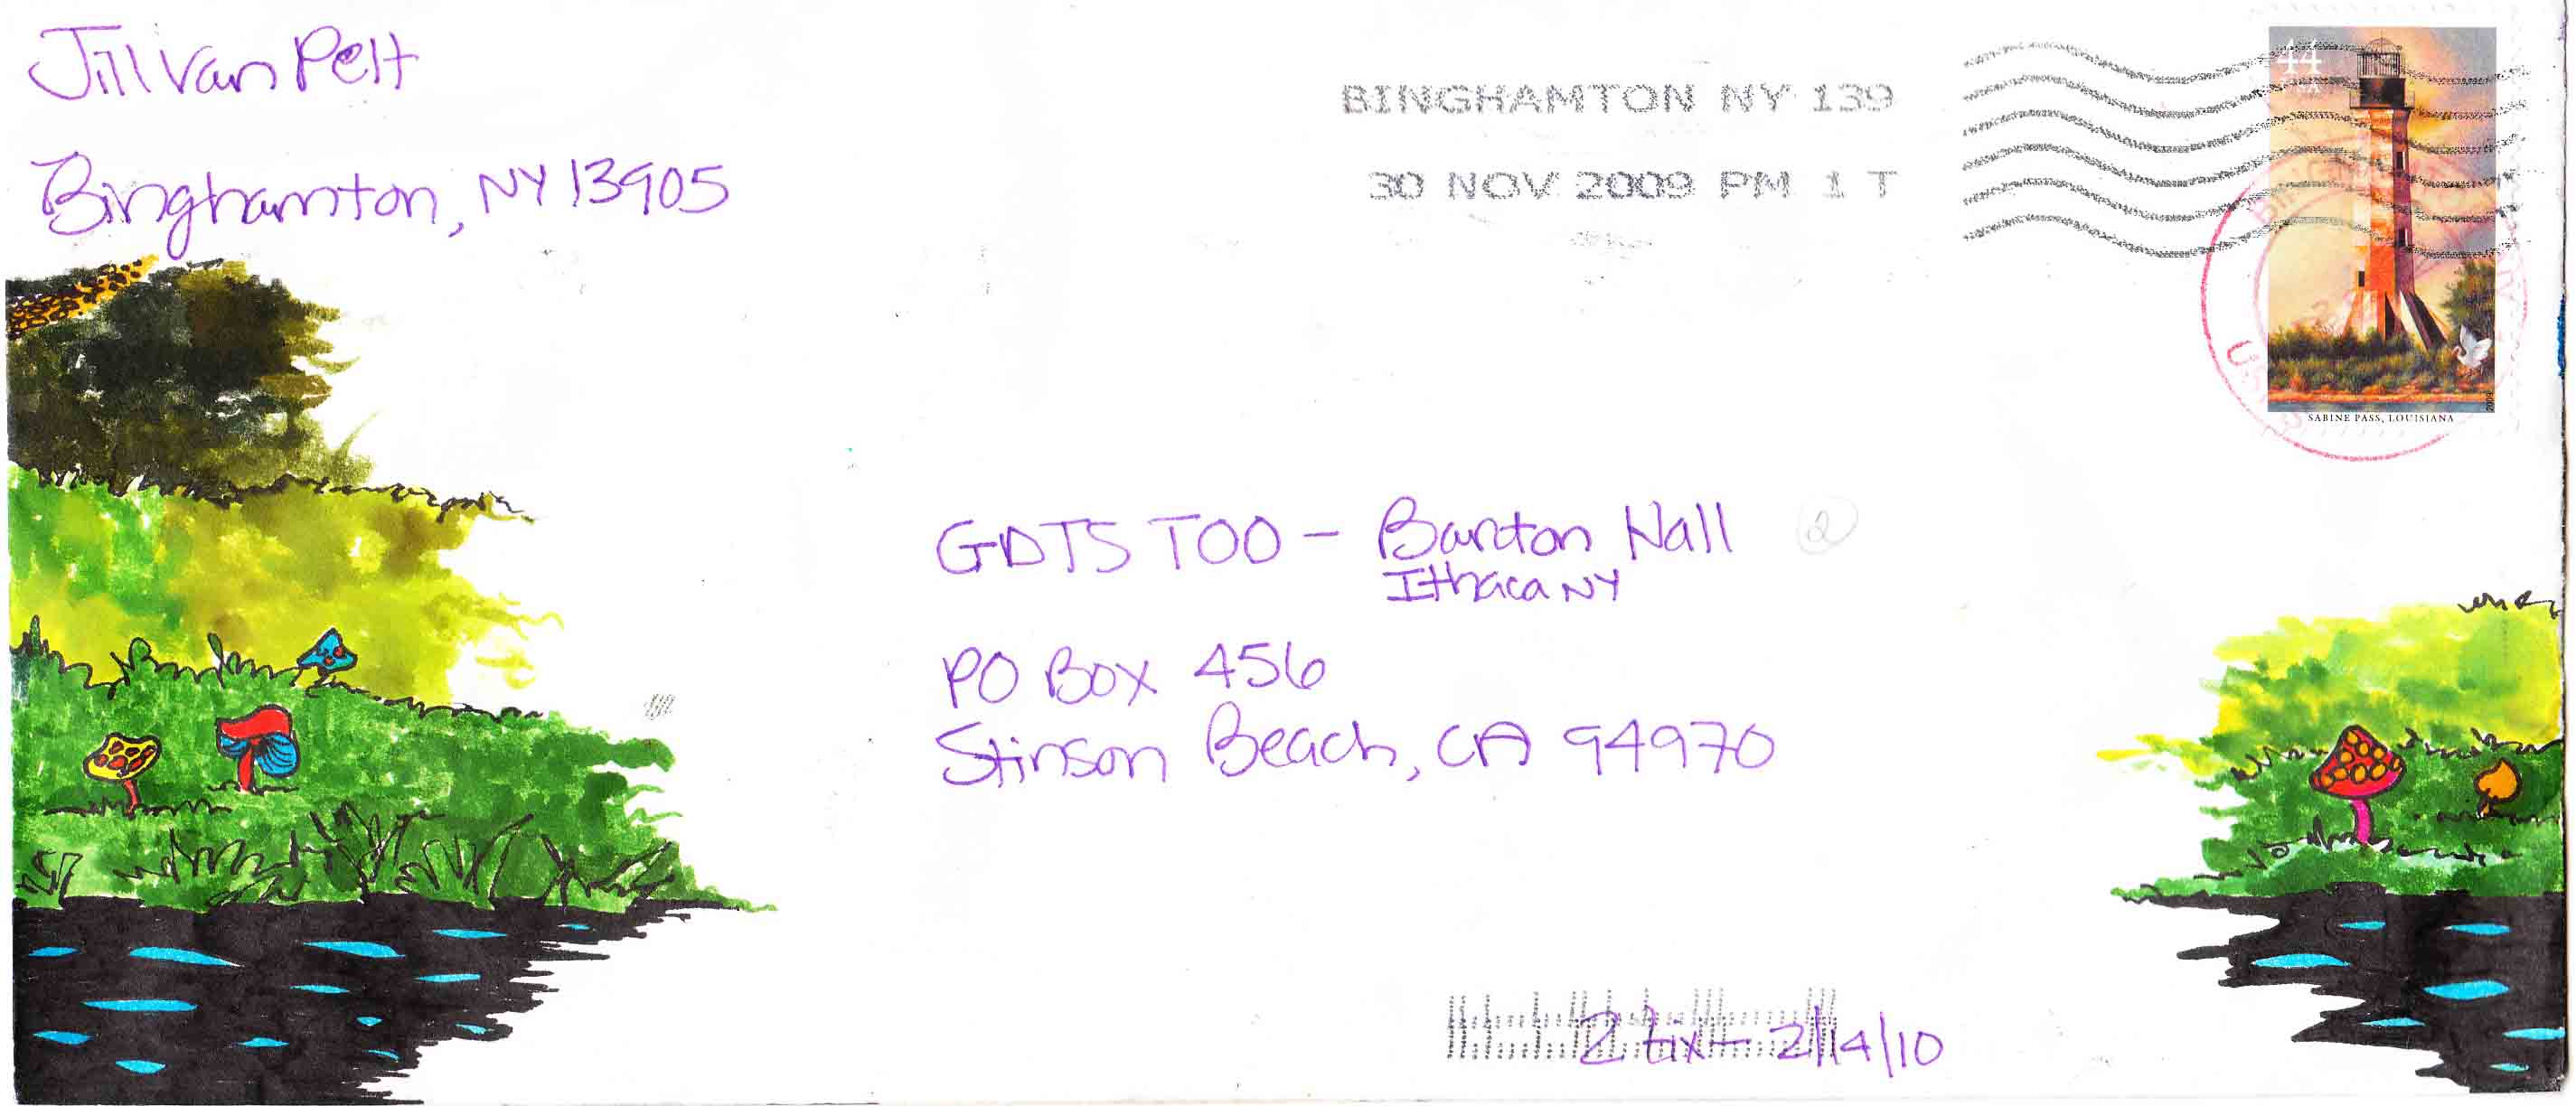 Jill Van Pelt
Binghamton, NY 13905
BINGHAMTON NY 139
30 NOV 2009 PM 1 T
44
USA
2009
SABINE PASS, LOUISIANA
GDTS TOO - Barton Hall
2
Ithaca NY
PO Box 456
Stinson Beach, CA 94970
2 tix - 2/14/10